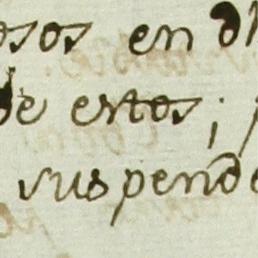 osos en
de estos;
suspende